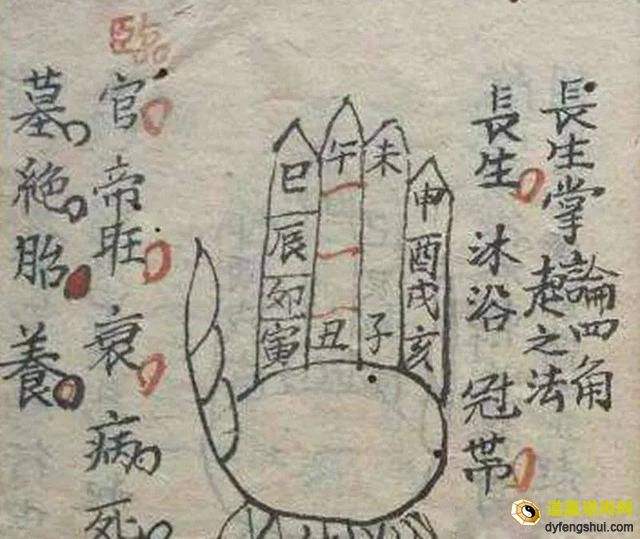 長生掌論四角
起之法
長生 沐浴 冠帶
臨
官 帝旺 衰 病 死
墓 絶 胎 養
巳 午 未 申
辰 酉
卯 戌
寅 丑 子 亥
dyfengshui.com